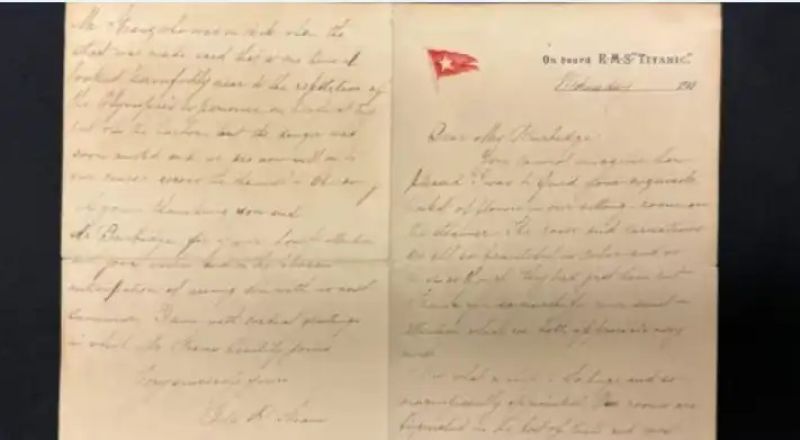 Mr. Straus who was on deck when the
start was made said that at one time it
looked painfully near to the repetition of
the Olympic's experience on
out of the harbor, but the danger was
soon averted and we are now well on to
our course across the channel to Cherbourg
Again thanking you and
Mr Burbidge for your lovely attention
and good wishes and in the pleasant
anticipation of seeing you with us next
Summer I am with cordial greetings
in which Mr Straus heartily joins
Very sincerely yours
Ida R. Straus
On board R.M.S. "TITANIC."
Wednesday 191
Dear Mrs Burbidge
You cannot imagine how
pleased I was to find your exquisite
basket of flowers in our sitting-room on
the steamer. The roses and carnations
are all so beautiful in color and as
fresh as though they had just been cut
Thank you so much for your sweet
attention which we both appreciate very
much
But what a ship! So huge and so
magnificently appointed. Our rooms are
furnished in the best of taste and